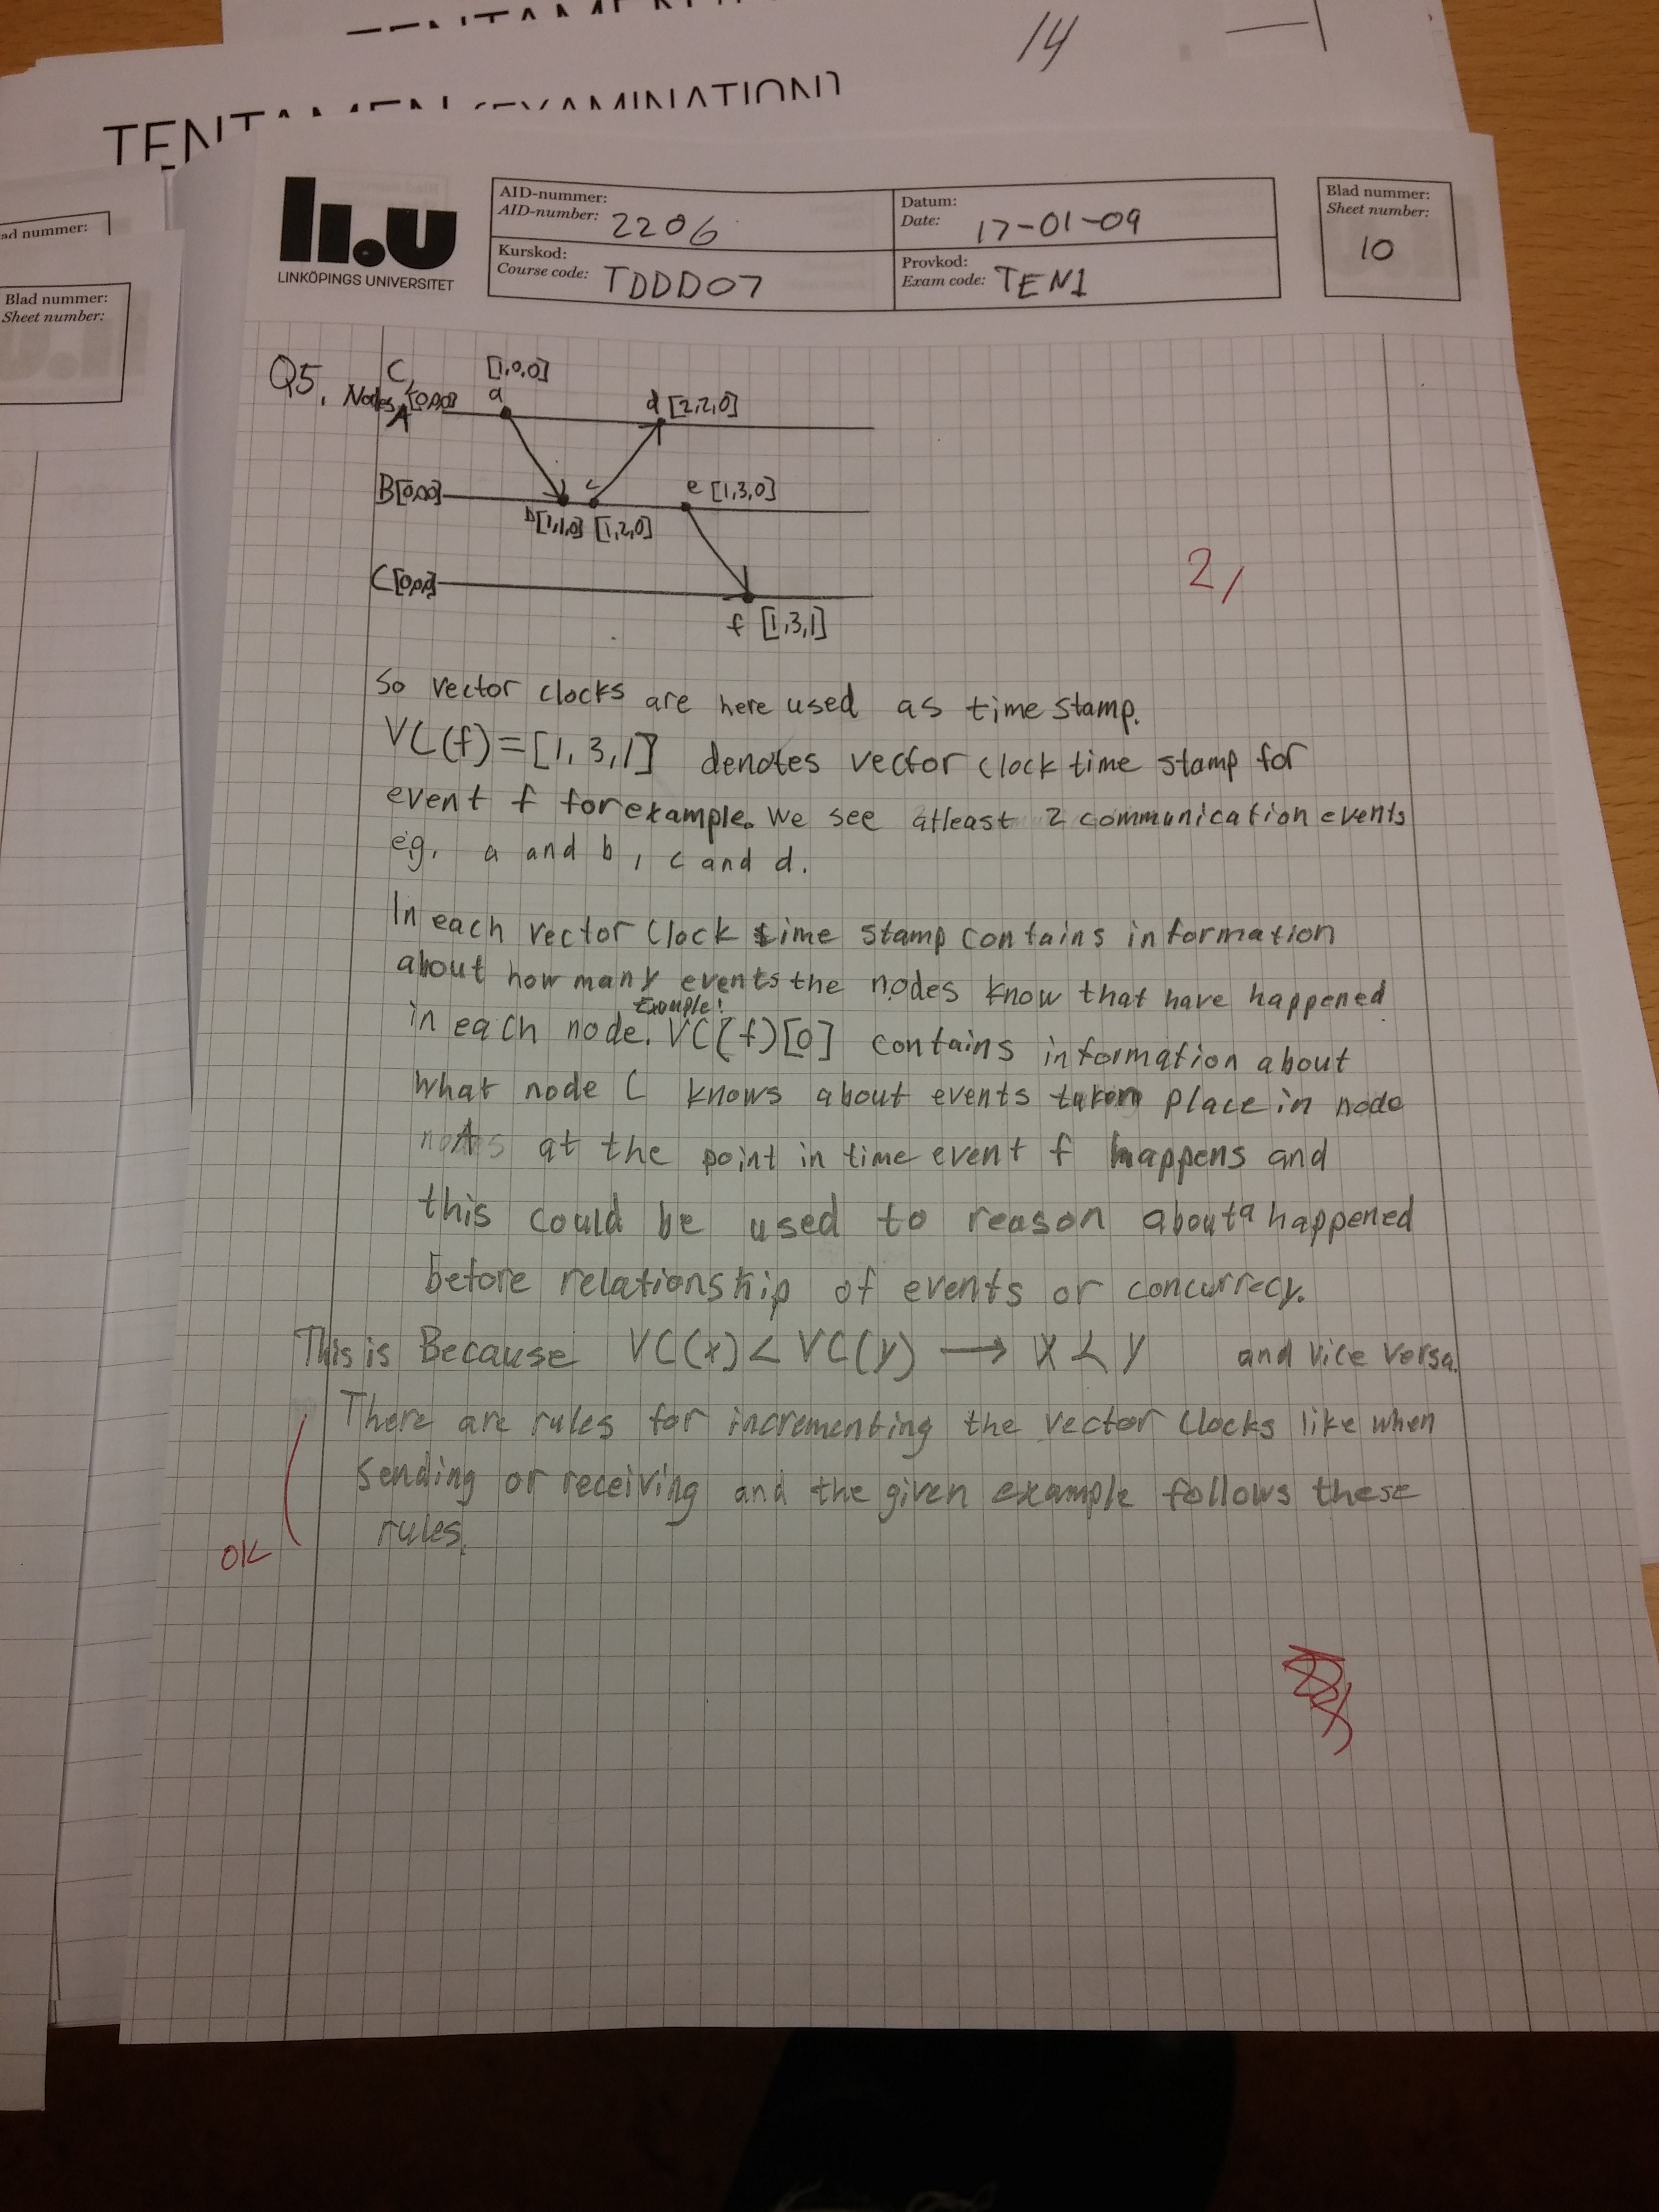 14
TENTAMEN (EXAMINATION)
ad nummer:
Blad nummer:
Sheet number:
li.u
LINKÖPINGS UNIVERSITET
AID-nummer:
AID-number: 2206
Datum:
Date: 17-01-09
Kurskod:
Course code: TDDD07
Provkod:
Exam code: TEN1
Blad nummer:
Sheet number:
10
Q5. C,
[1,0,0]
Nodes [0,0,0] a
A
d [2,2,0]
B[0,0,0] c e [1,3,0]
b[1,1,0] [1,2,0]
C[0,0,0]
f [1,3,1]
2,
So vector clocks are here used as time stamp.
VC(f)=[1,3,1] denotes vector clock time stamp for
event f for example. We see atleast 2 communication events
eg. a and b, c and d.
In each vector clock time stamp contains information
about how many events the nodes know that have happened
in each node. Example! VC(f)[0] contains information about
what node C knows about events taken place in node
A at the point in time event f happens and
this could be used to reason about a happened
before relationship of events or concurrecy.
This is Because VC(x) < VC(y) → x < y and vice versa.
There are rules for incrementing the vector clocks like when
sending or receiving and the given example follows these
rules.
OK